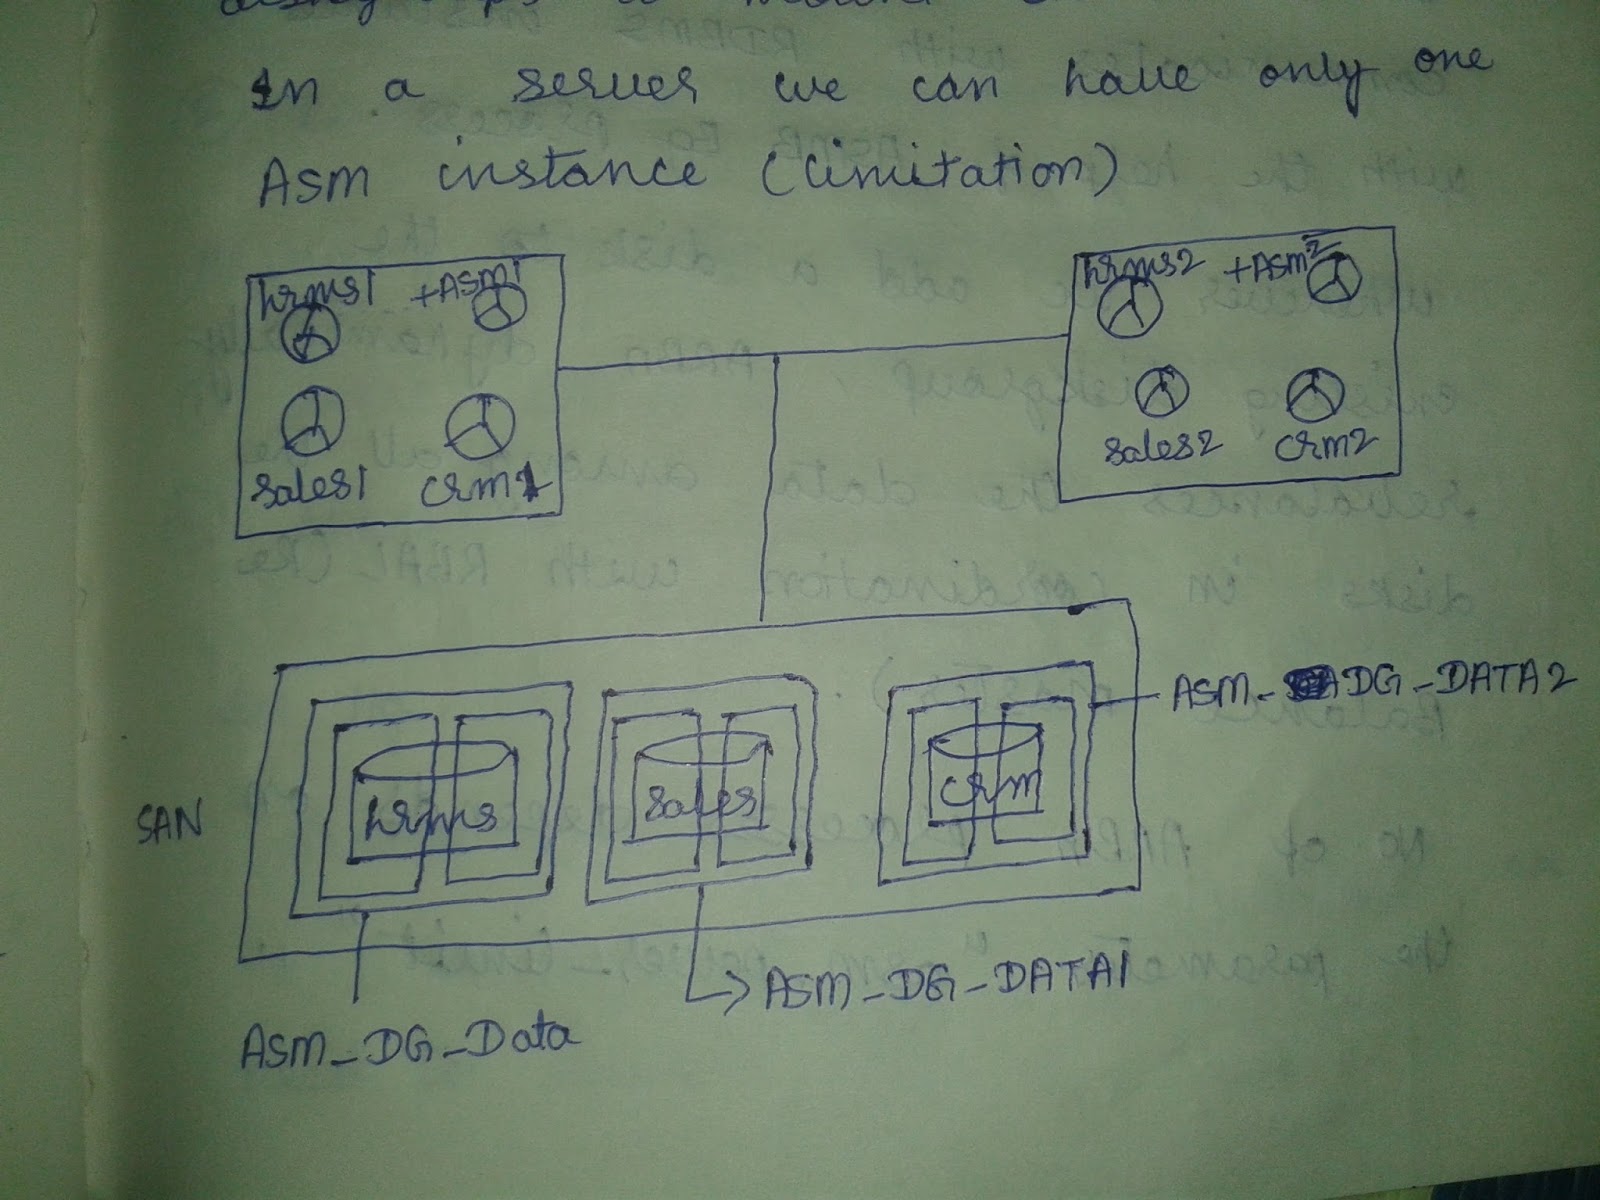 In a server we can have only one
ASM instance (limitation)
hrms1 +ASM1
hrms2 +ASM2
sales1 crm1
sales2 crm2
ASM_DG_DATA2
SAN
hrms sales crm
ASM_DG_DATA1
ASM_DG_Data